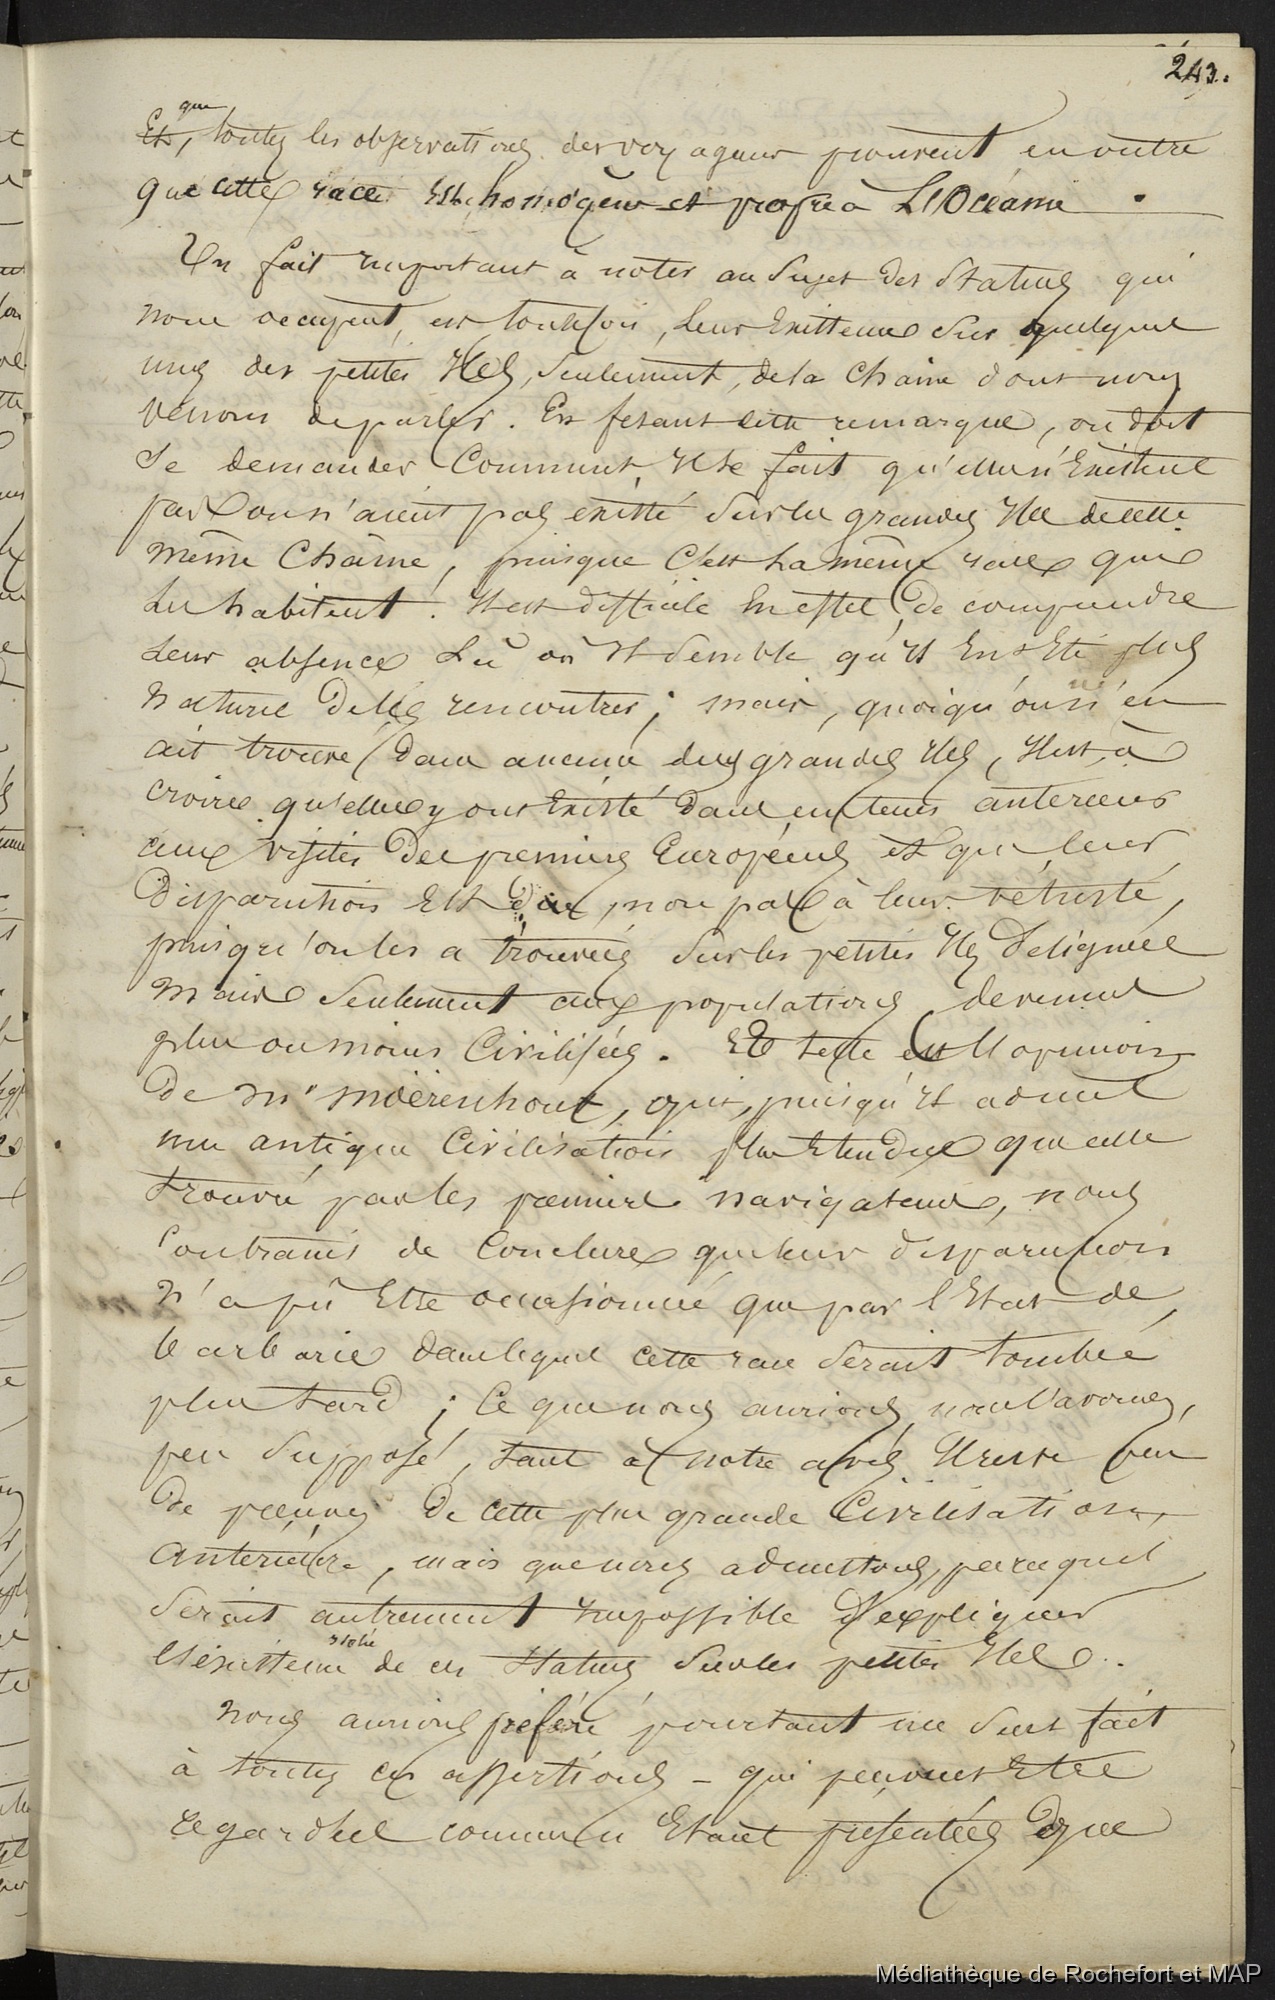 243.
que
Et, toutes les observations des voyageurs prouvent en outre
que cette race est homogène et propre à L'Océanie.
Un fait important à noter au sujet des Statues qui
nous occupent, est toutefois, leur Existence sur quelques
unes des petites Iles, seulement, de la chaine dont nous
venons de parler. En fesant cette remarque, on doit
se demander Comment Il se fait qu'elles n'Existent
pas ou n'aient pas existé sur les grandes Iles de cette
même Chaine, puisque C'est la même race que
les habitent. Il est difficile En effet, de comprendre
leur absence Là où Il semble qu'Il Eut Eté plus
naturel de les rencontrer; mais, quoiqu'on n'en
ait trouvé dans aucune des grandes Iles, Il est à
croire qu'elles y ont Existé dans un tems anterieur
aux visites des premiers Européens et que leur
disparution Est due, non pas à leur vétusté,
puisqu'on les a trouvées sur les petites Iles Désignées
mais seulement aux populations devenues
plus ou moins Civilisées. Et telle est l'opinion
de Mr Moërenhout, qui, puisqu'Il admet
une antique Civilisation plus Etendue que celle
trouvée par les premiers navigateurs, nous
contraint de Conclure que leur disparution
n'a pû Etre occasionnée que par l'Etat de
barbarie dans lequel cette race serait tombée
plus tard; Ce que nous aurions, nous l'avouons,
peu supposé, tant à notre avis Il reste peu
de preuves De cette plus grande Civilisation
antérieure, mais que nous admettons, parcequ'il
serait autrement Impossible d'expliquer
isolée
l'éxistence de ces Statues sur les petites Iles.
Nous aurions préféré pourtant un seul fait
à toutes ces assertions - qui peuvent Etre
regardées comme n'Etant présentées que
Médiathèque de Rochefort et MAP